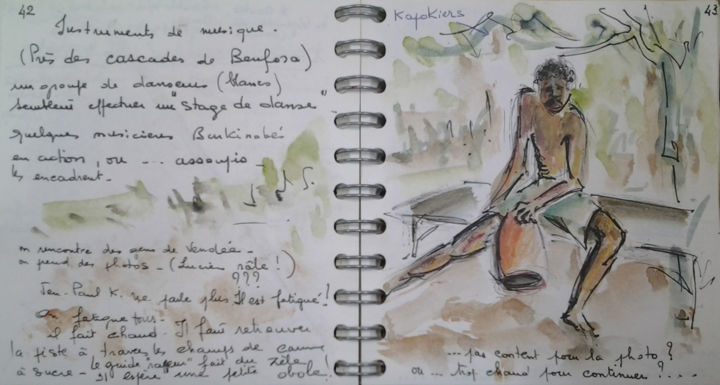 42
Instruments de musique.
(Près des cascades de Banfora)
un groupe de danseurs (blancs)
semblent effectuer un "stage de danse"
quelques musiciens Burkinabé
en action, ou ... assoupis
les encadrent.
on rencontre des gens de Vendée -
on prend des photos - (Lucien râle !)
???
Jean-Paul K. ne parle plus Il est fatigué !
On fatigue tous.
il fait chaud - Il faut retrouver
la piste à travers les champs de canne
à sucre - le guide fait du zèle !
Il espère une petite obole !
Kapokiers
43
... pas content pour la photo ?
ou ... trop chaud pour continuer ? ....